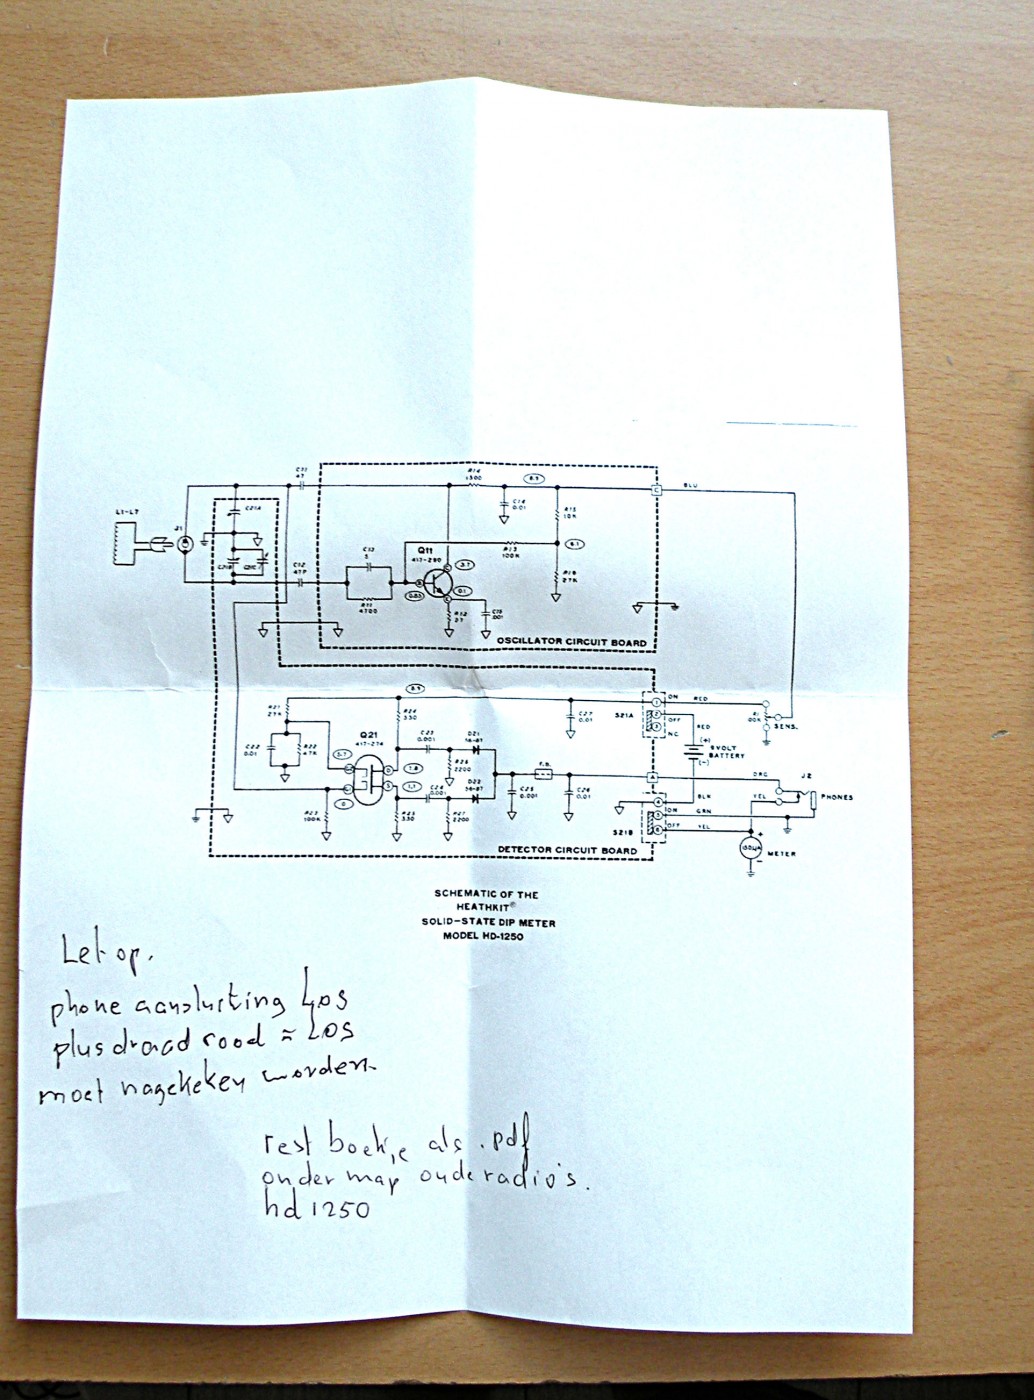 C11
47
R14
1500
8.9
BLU
C
C21A
C14
0.01
R15
10K
L1-L7
J1
R13
100K
6.1
Q11
417-290
C13
5
C12
47P
R16
27K
R11
4700
R12
27
OSCILLATOR CIRCUIT BOARD
8.9
ON RED
R21
27K
R24
330
C27
0.01
S21A
OFF
NC
RED
R1
SENS.
Q21
417-274
C23
0.001
D21
56-87
(+)
9 VOLT
BATTERY
(-)
C22
0.01
R22
47K
R26
2200
F.B.
D22
56-87
ORG
J2
PHONES
C24
0.001
C25
0.001
C26
0.01
BLK
YEL
R23
100K
R25
330
R27
2200
ON GRN
S21B
OFF YEL
METER
DETECTOR CIRCUIT BOARD
SCHEMATIC OF THE
HEATHKIT®
SOLID-STATE DIP METER
MODEL HD-1250
Let op.
phone aansluiting LOS
plus draad rood = LOS
moet nagekeken worden
rest boekje als .pdf
onder map oude radio's.
hd 1250